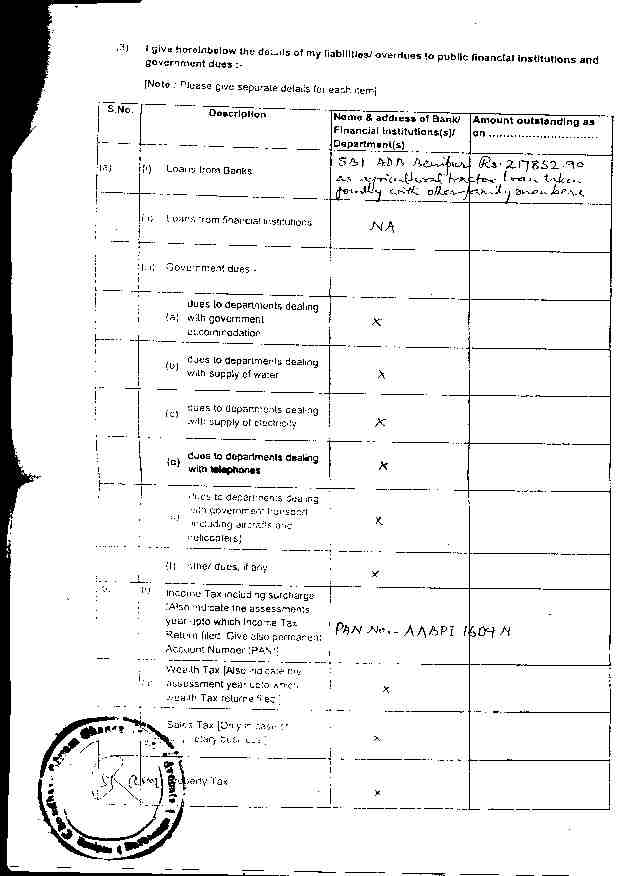 (3) I give hereinbelow the details of my liabilities/ overdues to public financial institutions and
government dues :-
[Note : Please give separate details for each item]
S.No. Description Name & address of Bank/ Amount outstanding as
Financial Institutions(s)/ on ............................
Department(s)
SBI ADB Rs. 217852.90
(a) (i) Loans from Banks as agricultural tractor loan taken
jointly with other family members
(ii) Loans from financial institutions NA
(iii) Government dues :-
dues to departments dealing
(a) with government X
accommodation
(b) dues to departments dealing
with supply of water X
(c) dues to departments dealing
with supply of electricity X
(d) dues to departments dealing
with telephones X
dues to departments dealing
with government transport
(including aircrafts and X
helicopters)
(f) other dues, if any X
(i) Income Tax including surcharge
[Also indicate the assessments
year upto which Income Tax
Return filed. Give also permanent PAN No.- AABPI 1609
Account Number (PAN)]
Wealth Tax [Also indicate the
(ii) assessment year upto which X
wealth Tax returns filed]
Sales Tax [Only in case of
proprietary business] X
Property Tax X